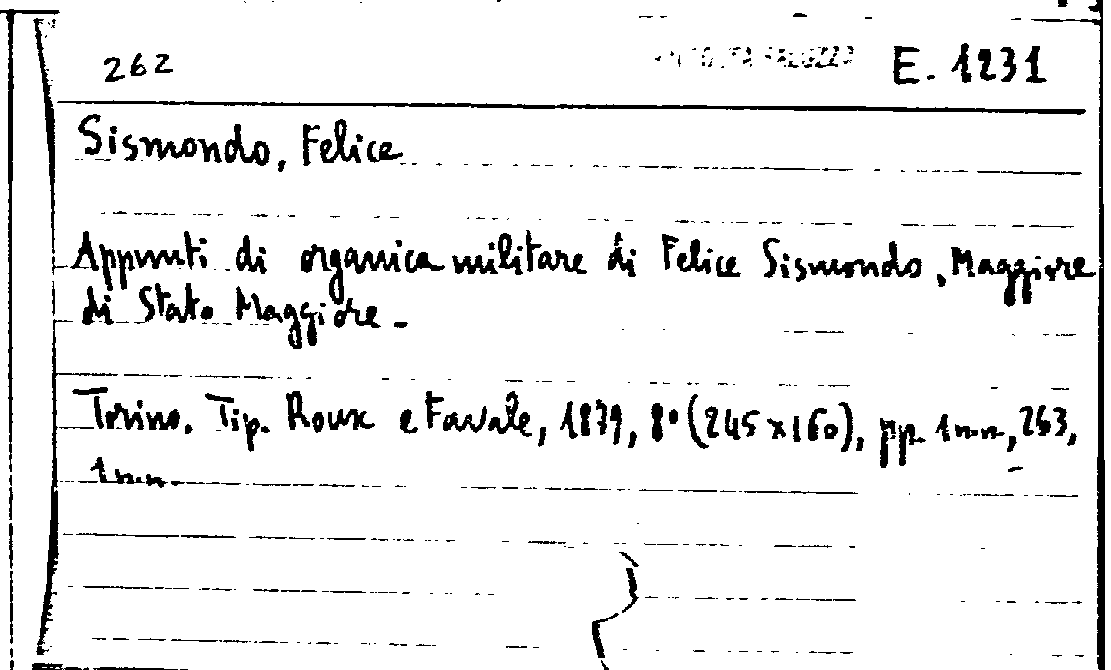 262 E. 1231
Sismondo, Felice
Appunti di organica militare di Felice Sismondo, Maggiore
di Stato Maggiore.
Torino. Tip. Roux e Favale, 1879, 8° (245 x 160), pp. 1 n.n., 263,
1 n.n.